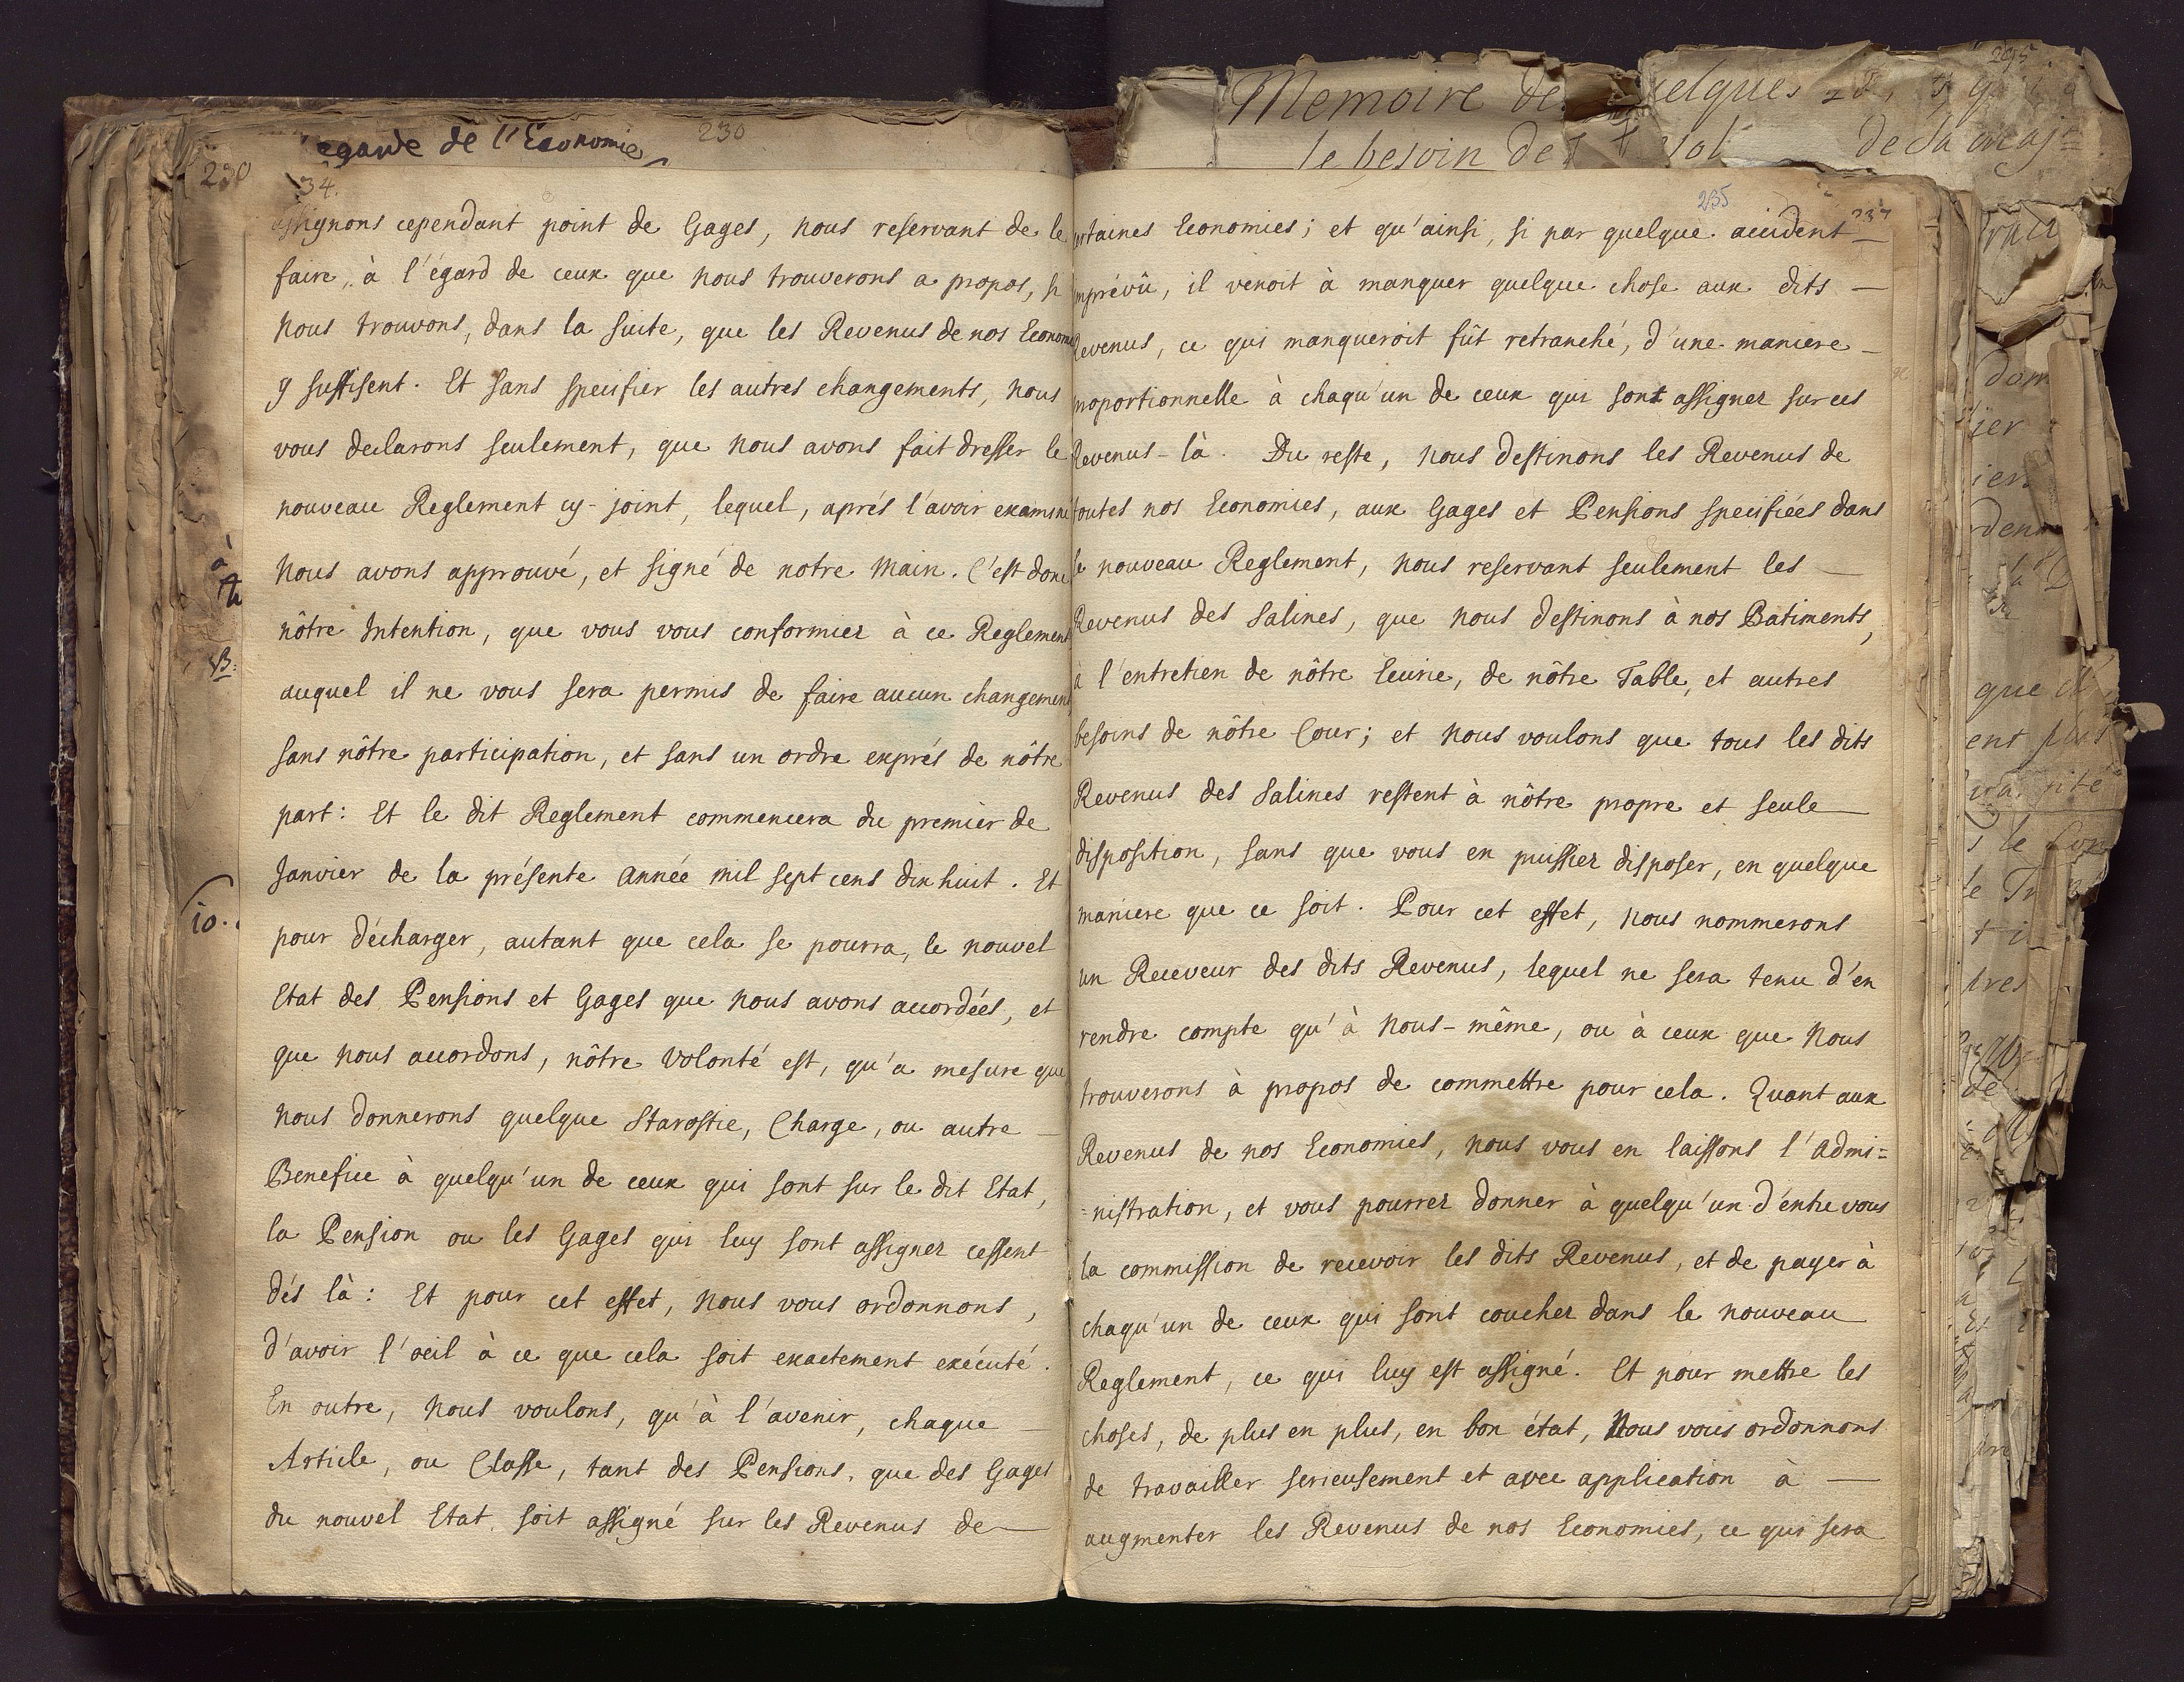 de l'Economie
230
230
34.
assignons cependant point de Gages, nous reservant de le
faire, à l'égard de ceux que nous trouverons a propos, si
nous trouvons, dans la suite, que les Revenus de nos Econom
y suffisent. Et sans specifier les autres changements, nous
vous declarons seulement, que nous avons fait dresser le
nouveau Reglement cy-joint, lequel, aprés l'avoir examiné
nous avons approuvé, et signé de notre main. C'est donc
nôtre Intention, que vous vous conformiez à ce Reglement
auquel il ne vous sera permis de faire aucun changement
sans nôtre participation, et sans un ordre exprés de nôtre
part: Et le dit Reglement commencera du premier de
Janvier de la présente année mil sept cens dix huit. Et
pour décharger, autant que cela se pourra, le nouvel
Etat des Pensions et Gages que nous avons accordées, et
que nous accordons, nôtre volonté est, qu'a mesure que
nous donnerons quelque Starostie, Charge, ou autre —
Benefice à quelqu'un de ceux qui sont sur le dit Etat,
la Pension ou les Gages qui luy sont assignez cessent
dés là: Et pour cet effet, nous vous ordonnons,
d'avoir l'oeil à ce que cela soit exactement exécuté.
En outre, nous voulons, qu'à l'avenir, chaque —
Article, ou Classe, tant des Pensions, que des Gages
du nouvel Etat, soit assigné sur les Revenus de —
à
B:
10.
235
certaines Economies; et qu'ainsi, si par quelque accident —
imprévû, il venoit à manquer quelque chose aux dits —
Revenus, ce qui manqueroit fût retranché, d'une maniere —
proportionnelle à chaqu'un de ceux qui sont assignez sur ces
Revenus-là. Du reste, nous destinons les Revenus de
toutes nos Economies, aux Gages et Pensions specifiées dans
le nouveau Reglement, nous reservant seulement les —
Revenus des Salines, que nous destinons à nos Batiments,
à l'entretien de nôtre Ecurie, de nôtre Table, et autres
besoins de nôtre Cour; et nous voulons que tous les dits
Revenus des Salines restent à nôtre propre et seule —
disposition, sans que vous en puissiez disposer, en quelque
maniere que ce soit. Pour cet effet, nous nommerons
un Receveur des dits Revenus, lequel ne sera tenu d'en
rendre compte qu'à nous-même, ou à ceux que nous
trouverons à propos de commettre pour cela. Quant aux
Revenus de nos Economies, nous vous en laissons l'admi=
=nistration, et vous pourrez donner à quelqu'un d'entre vous
la commission de recevoir les dits Revenus, et de payer à
chaqu'un de ceux qui sont couchez dans le nouveau
Reglement, ce qui luy est assigné. Et pour mettre les
choses, de plus en plus, en bon état, Nous vous ordonnons
de travailler serieusement et avec application à —
augmenter les Revenus de nos Economies, ce qui sera
Memoire de
le besoin de
que
le
de